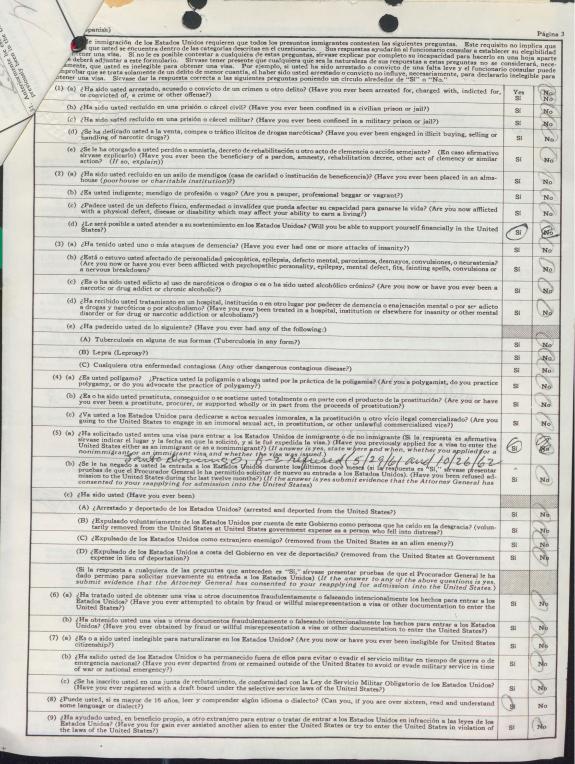 Spanish)
Página 3
de inmigración de los Estados Unidos requieren que todos los presuntos inmigrantes contesten las siguientes preguntas. Este requisito no implica que
que usted se encuentra dentro de las categorías descritas en el cuestionario. Sus respuestas ayudarán al funcionario consular a establecer su elegibilidad
tener una visa. Si no le es posible contestar a cualquiera de estas preguntas, sírvase explicar por completo su incapacidad para hacerlo en una hoja aparte
deberá adjuntar a este formulario. Sírvase tener presente que cualquiera que sea la naturaleza de sus respuestas a estas preguntas no se considerará, nece-
mente, que usted es inelegible para obtener una visa. Por ejemplo, si usted ha sido arrestado o convicto de una falta leve y el funcionario consular puede
mprobar que se trata solamente de un delito de menor cuantía, el haber sido usted arrestado o convicto no influye, necesariamente, para declararlo inelegible para
btener una visa. Sírvase dar la respuesta correcta a las siguientes preguntas poniendo un círculo alrededor de "Sí" o "No."
(1) (a) ¿Ha sido usted arrestado, acusado o convicto de un crimen u otro delito? (Have you ever been arrested for, charged with, indicted for, Yes No
or convicted of, a crime or other offense?) Sí No
(b) ¿Ha sido usted recluido en una prisión o cárcel civil? (Have you ever been confined in a civilian prison or jail?) Sí No
(c) ¿Ha sido usted recluido en una prisión o cárcel militar? (Have you ever been confined in a military prison or jail?) Sí No
(d) ¿Se ha dedicado usted a la venta, compra o tráfico ilícitos de drogas narcóticas? (Have you ever been engaged in illicit buying, selling or
handling of narcotic drugs?) Sí No
(e) ¿Se le ha otorgado a usted perdón o amnistía, decreto de rehabilitación u otro acto de clemencia o acción semejante? (En caso afirmativo
sírvase explicarlo) (Have you ever been the beneficiary of a pardon, amnesty, rehabilitation decree, other act of clemency or similar
action? (If so, explain)) Sí No
(2) (a) ¿Ha sido usted recluido en un asilo de mendigos (casa de caridad o institución de beneficencia)? (Have you ever been placed in an alms-
house (poorhouse or charitable institution)? Sí No
(b) ¿Es usted indigente; mendigo de profesión o vago? (Are you a pauper, professional beggar or vagrant?) Sí No
(c) ¿Padece usted de un defecto físico, enfermedad o invalidez que pueda afectar su capacidad para ganarse la vida? (Are you now afflicted
with a physical defect, disease or disability which may affect your ability to earn a living?) Sí No
(d) ¿Le será posible a usted atender a su sostenimiento en los Estados Unidos? (Will you be able to support yourself financially in the United
States?) Sí No
(3) (a) ¿Ha tenido usted uno o más ataques de demencia? (Have you ever had one or more attacks of insanity?) Sí No
(b) ¿Está o estuvo usted afectado de personalidad psicopática, epilepsia, defecto mental, paroxismos, desmayos, convulsiones, o neurastenia?
(Are you now or have you ever been afflicted with psychopathic personality, epilepsy, mental defect, fits, fainting spells, convulsions or
a nervous breakdown? Sí No
(c) ¿Es o ha sido usted adicto al uso de narcóticos o drogas o es o ha sido usted alcohólico crónico? (Are you now or have you ever been a
narcotic or drug addict or chronic alcoholic?) Sí No
(d) ¿Ha recibido usted tratamiento en un hospital, institución o en otro lugar por padecer de demencia o enajenación mental o por ser adicto
a drogas y narcóticos o por alcoholismo? (Have you ever been treated in a hospital, institution or elsewhere for insanity or other mental
disorder or for drug or narcotic addiction or alcoholism?) Sí No
(e) ¿Ha padecido usted de lo siguiente? (Have you ever had any of the following:)
(A) Tuberculosis en alguna de sus formas (Tuberculosis in any form?) Sí No
(B) Lepra (Leprosy?) Sí No
(C) Cualquiera otra enfermedad contagiosa (Any other dangerous contagious disease?) Sí No
(4) (a) ¿Es usted polígamo? ¿Practica usted la poligamia o aboga usted por la práctica de la poligamia? (Are you a polygamist, do you practice
polygamy, or do you advocate the practice of polygamy?) Sí No
(b) ¿Es o ha sido usted prostituta, conseguidor o se sostiene usted totalmente o en parte con el producto de la prostitución? (Are you or have
you ever been a prostitute, procurer, or supported wholly or in part from the proceeds of prostitution?) Sí No
(c) ¿Va usted a los Estados Unidos para dedicarse a actos sexuales inmorales, a la prostitución u otro vicio ilegal comercializado? (Are you
going to the United States to engage in an immoral sexual act, in prostitution, or other unlawful commercialized vice?) Sí No
(5) (a) ¿Ha solicitado usted antes una visa para entrar a los Estados Unidos de inmigrante o de no inmigrante (Si la respuesta es afirmativa
sírvase indicar el lugar y la fecha en que la solicitó, y si le fué expedida la visa.) (Have you previously applied for a visa to enter the
United States either as an immigrant or nonimmigrant?) (If answer is yes, state where and when, whether you applied for a
nonimmigrant or an immigrant visa and whether the visa was issued.) Sí No
Santo Domingo, B-2 refused (5/29/61 and 10/26/62
(b) ¿Se le ha negado a usted la entrada a los Estados Unidos durante los últimos doce meses (si la respuesta es "Sí," sírvase presentar
pruebas de que el Procurador General le ha permitido solicitar de nuevo su entrada a los Estados Unidos). (Have you been refused ad-
mission to the United States during the last twelve months?) (If the answer is yes submit evidence that the Attorney General has
consented to your reapplying for admission into the United States) Sí No
(c) ¿Ha sido usted (Have you ever been)
(A) ¿Arrestado y deportado de los Estados Unidos? (arrested and deported from the United States?) Sí No
(B) ¿Expulsado voluntariamente de los Estados Unidos por cuenta de este Gobierno como persona que ha caído en la desgracia? (volun-
tarily removed from the United States at United States government expense as a person who fell into distress?) Sí No
(C) ¿Expulsado de los Estados Unidos como extranjero enemigo? (removed from the United States as an alien enemy?) Sí No
(D) ¿Expulsado de los Estados Unidos a costa del Gobierno en vez de deportación? (removed from the United States at Government
expense in lieu of deportation?) Sí No
(Si la respuesta a cualquiera de las preguntas que anteceden es "Sí," sírvase presentar pruebas de que el Procurador General le ha
dado permiso para solicitar nuevamente su entrada a los Estados Unidos) (If the answer to any of the above questions is yes,
submit evidence that the Attorney General has consented to your reapplying for admission into the United States.)
(6) (a) ¿Ha tratado usted de obtener una visa u otros documentos fraudulentamente o falseando intencionalmente los hechos para entrar a los
Estados Unidos? (Have you ever attempted to obtain by fraud or willful misrepresentation a visa or other documentation to enter the
United States?) Sí No
(b) ¿Ha obtenido usted una visa u otros documentos fraudulentamente o falseando intencionalmente los hechos para entrar a los Estados
Unidos? (Have you ever obtained by fraud or willful misrepresentation a visa or other documentation to enter the United States?) Sí No
(7) (a) ¿Es o a sido usted inelegible para naturalizarse en los Estados Unidos? (Are you now or have you ever been ineligible for United States
citizenship?) Sí No
(b) ¿Ha salido usted de los Estados Unidos o ha permanecido fuera de ellos para evitar o evadir el servicio militar en tiempo de guerra o de
emergencia nacional? (Have you ever departed from or remained outside of the United States to avoid or evade military service in time
of war or national emergency?) Sí No
(c) ¿Se ha inscrito usted en una junta de reclutamiento, de conformidad con la Ley de Servicio Militar Obligatorio de los Estados Unidos?
(Have you ever registered with a draft board under the selective service laws of the United States?) Sí No
(8) ¿Puede usted, si es mayor de 16 años, leer y comprender algún idioma o dialecto? (Can you, if you are over sixteen, read and understand
some language or dialect?) Sí No
(9) ¿Ha ayudado usted, en beneficio propio, a otro extranjero para entrar o tratar de entrar a los Estados Unidos en infracción a las leyes de los
Estados Unidos? (Have you for gain ever assisted another alien to enter the United States or try to enter the United States in violation of
the laws of the United States?) Sí No